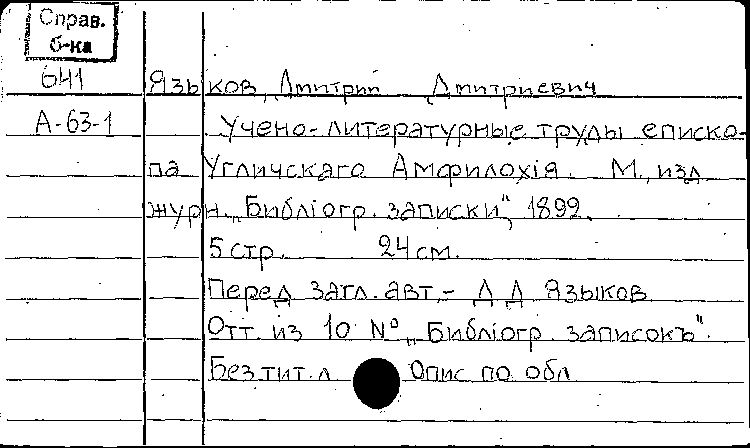 Справ.
б-ка
641
Языков, Дмитрий Дмитриевич
А-63-1
Учено-литературные труды еписко-
па Угличскаго Амфилохія. М., изд.
журн. „Библіогр. записки", 1892.
5 стр. 24 см.
Перед загл. авт.- Д Д Языков
Отт. из 10 № „Библіогр. записокъ".
Без тит. л Опис по обл